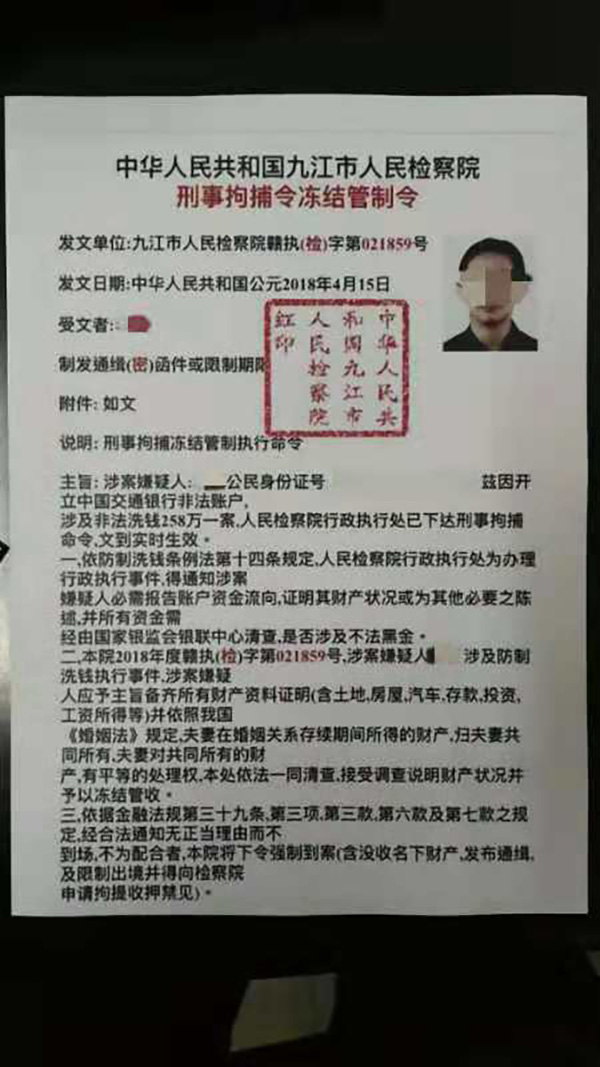 中华人民共和国九江市人民检察院
刑事拘捕令冻结管制令
发文单位:九江市人民检察院赣执(检)字第021859号
发文日期:中华人民共和国公元2018年4月15日
受文者:
制发通缉(密)函件或限制期限
中华人民共
和国九江市
人民检察院
红印
附件: 如文
说明: 刑事拘捕冻结管制执行命令
主旨: 涉案嫌疑人: 公民身份证号 兹因开
立中国交通银行非法账户,
涉及非法洗钱258万一案,人民检察院行政执行处已下达刑事拘捕
命令,文到实时生效。
一,依防制洗钱条例法第十四条规定,人民检察院行政执行处为办理
行政执行事件,得通知涉案
嫌疑人必需报告账户资金流向,证明其财产状况或为其他必要之陈
述,并所有资金需
经由国家银监会银联中心清查,是否涉及不法黑金。
二,本院2018年度赣执(检)字第021859号,涉案嫌疑人 涉及防制
洗钱执行事件,涉案嫌疑
人应予主旨备齐所有财产资料证明(含土地,房屋,汽车,存款,投资,
工资所得等)并依照我国
《婚姻法》规定,夫妻在婚姻关系存续期间所得的财产,归夫妻共
同所有,夫妻对共同所有的财
产,有平等的处理权,本处依法一同清查,接受调查说明财产状况并
予以冻结管收。
三,依据金融法规第三十九条,第三项,第三款,第六款及第七款之规
定,经合法通知无正当理由而不
到场,不为配合者,本院将下令强制到案(含没收名下财产,发布通缉,
及限制出境并得向检察院
申请拘提收押禁见)。